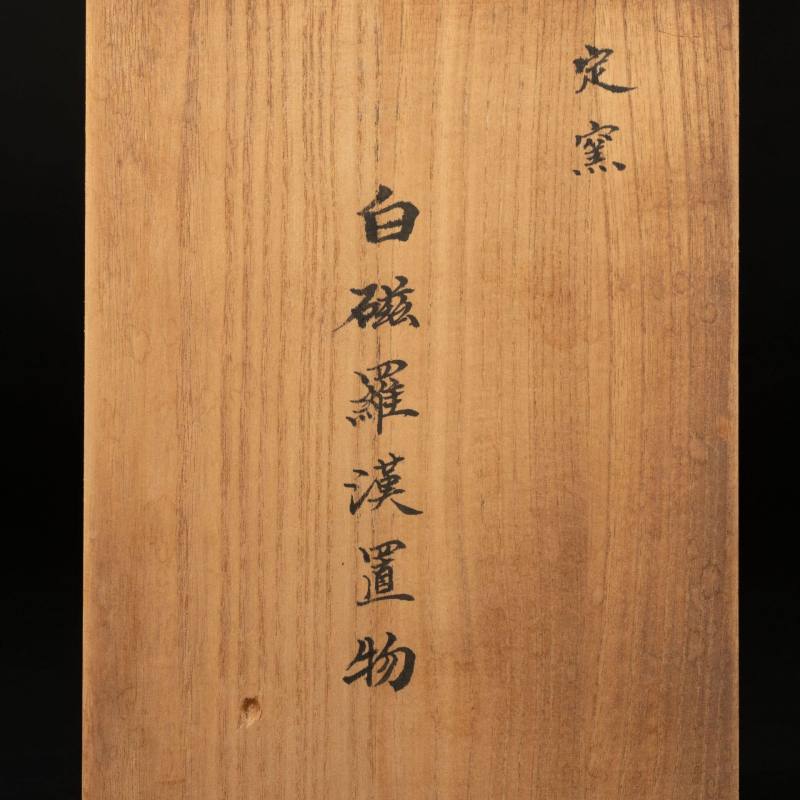 定窯
白磁羅漢置物